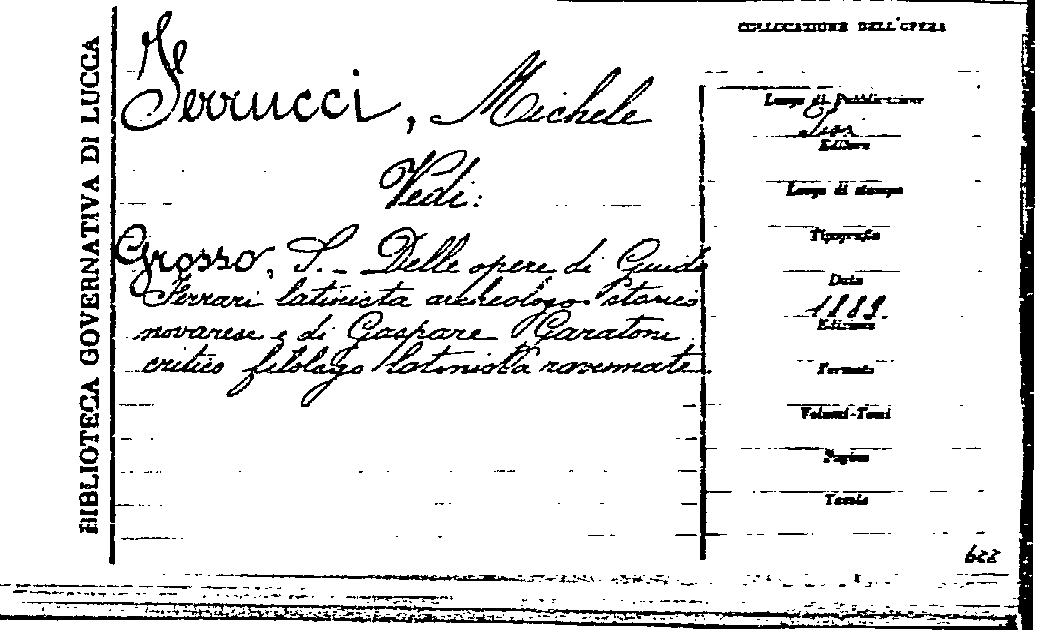 BIBLIOTECA GOVERNATIVA DI LUCCA
Ferrucci, Michele
Vedi:
Grosso, S. - Delle opere di Guido
Ferrari latinista archeologo storico
novarese e di Gaspare Garatoni
critico filologo latinista ravennate
COLLOCAZIONE DELL'OPERA
Luogo di Pubblicazione
Editore
Luogo di stampa
Tipografia
Data
1889.
Edizione
Formato
Volumi-Tomi
Pagine
Tavole
622